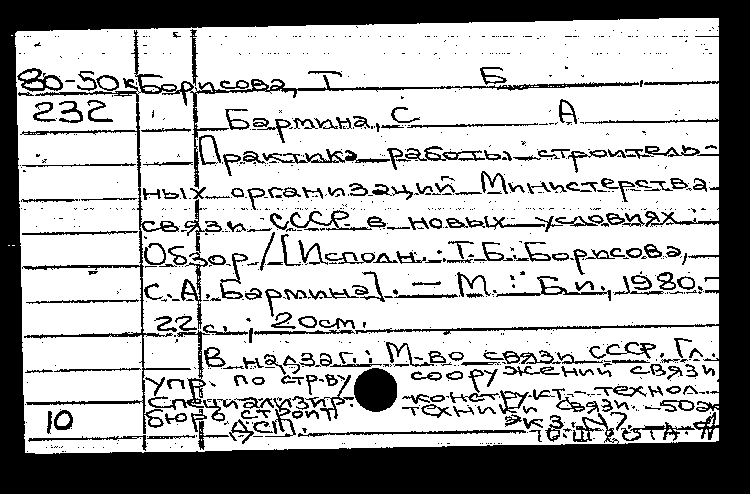 80-50к Борисова, Т Б
232 Бармина, С А
Практика работы строитель-
ных организаций Министерства
связи СССР в новых условиях :
Обзор / [Исполн.: Т.Б. Борисова,
С.А. Бармина]. — М. : Б.и., 1980.-
22 с. ; 20 см.
В надзаг.: М-во связи СССР. Гл.
упр. по стр-ву сооружений связи
Специализир. конструкт.-технол.
10 бюро строит техники связи. -50эк
ДСП. Экз. N7.